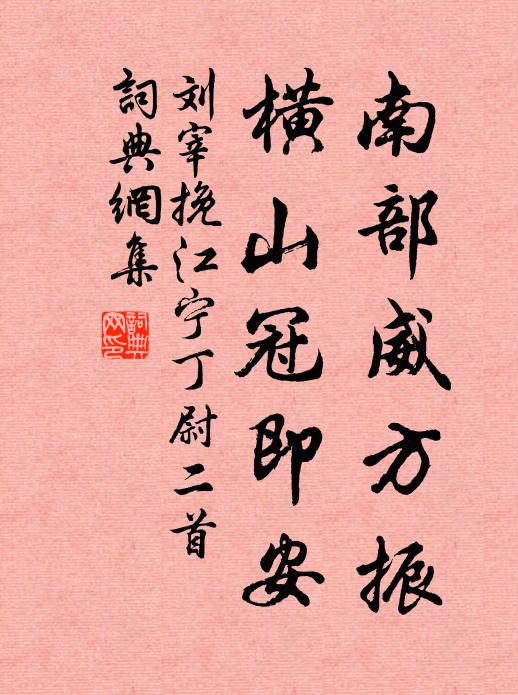 南部威方振
橫山冠即安
刘宰挽江宁丁尉二首
詞典網集
詞典网印